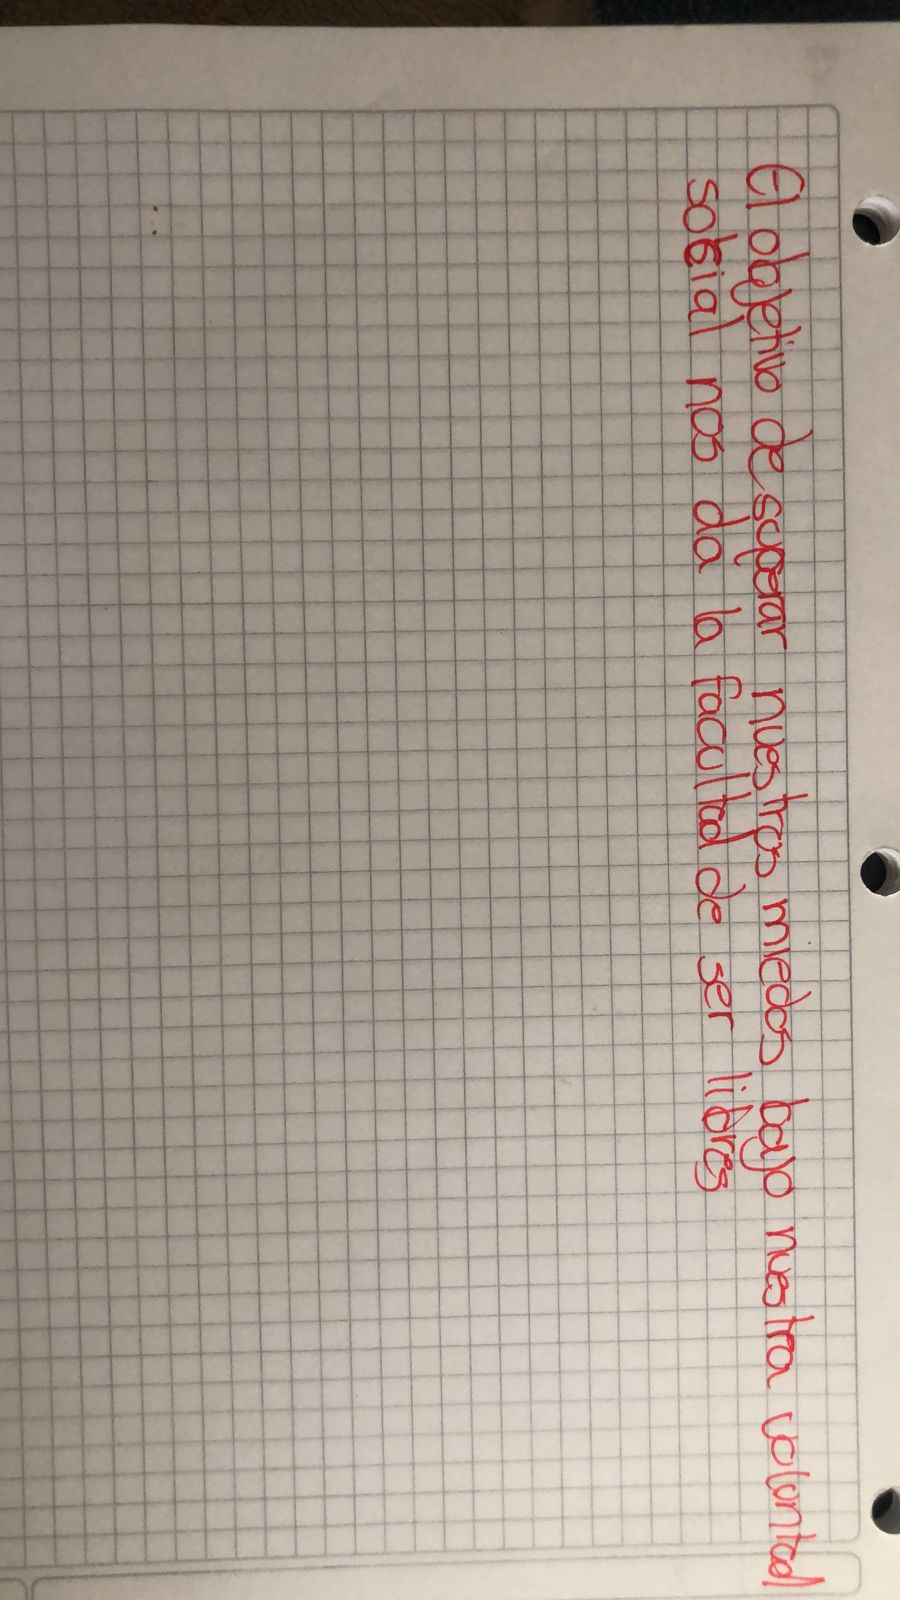 El objetivo de superar nuestros miedos bajo nuestra voluntad
social nos da la facultad de ser libres